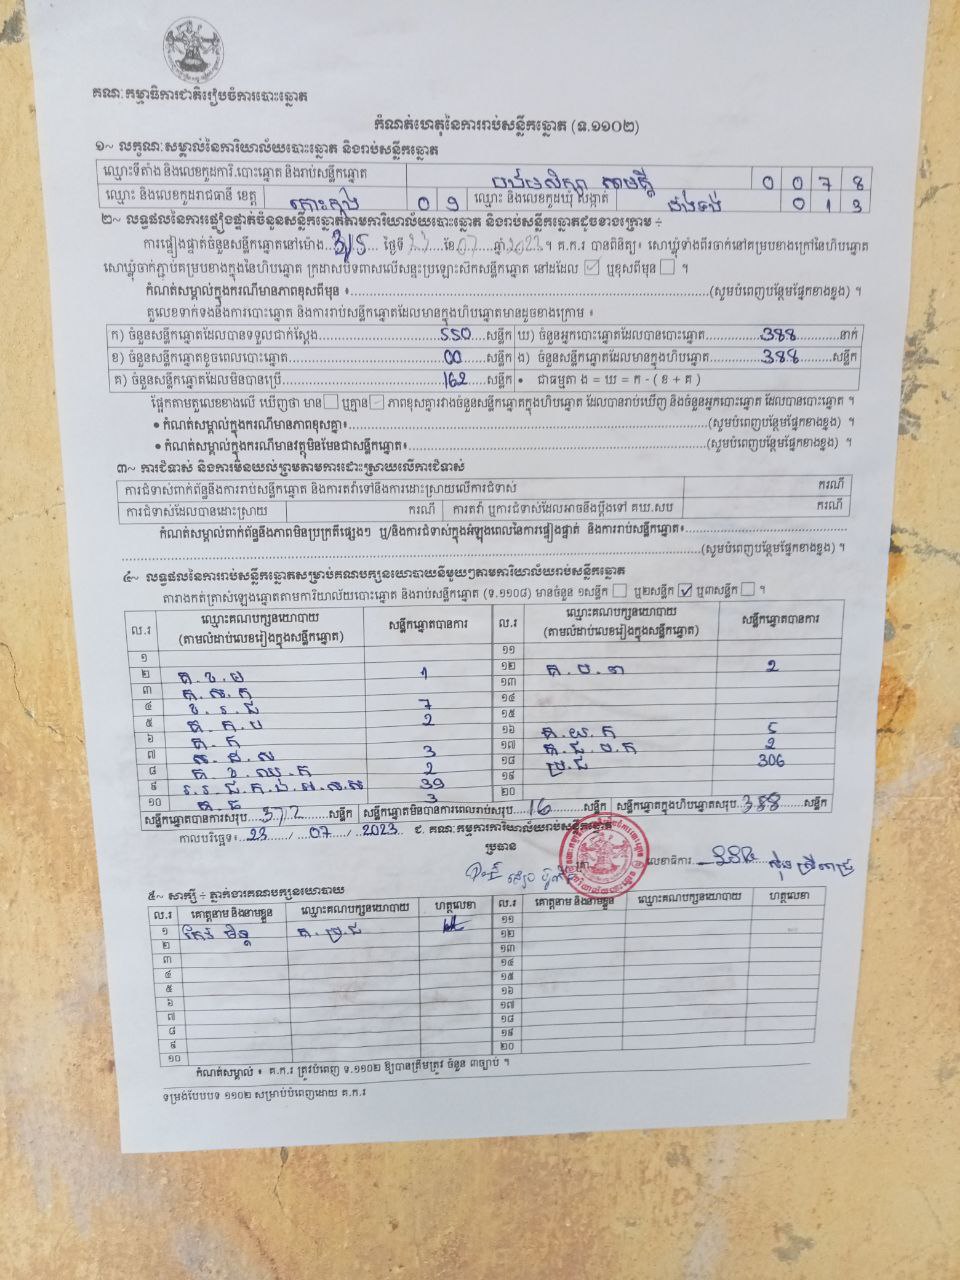 គណៈកម្មាធិការជាតិរៀបចំការបោះឆ្នោត
កំណត់ហេតុនៃការរាប់សន្លឹកឆ្នោត (ទ.១១០២)
១~ លក្ខណៈសម្គាល់នៃការិយាល័យបោះឆ្នោត និងរាប់សន្លឹកឆ្នោត
ឈ្មោះទីតាំង និងលេខកូដការិ.បោះឆ្នោត និងរាប់សន្លឹកឆ្នោត 0 0 7 8
ឈ្មោះ និងលេខកូដរាជធានី ខេត្ត កោះកុង 0 ១ ឈ្មោះ និងលេខកូដឃុំ សង្កាត់ ដងទង់ 0 1 3
២~ លទ្ធផលនៃការផ្ទៀងផ្ទាត់ចំនួនសន្លឹកឆ្នោតតាមការិយាល័យបោះឆ្នោត និងរាប់សន្លឹកឆ្នោតដូចខាងក្រោម ÷
ការផ្ទៀងផ្ទាត់ចំនួនសន្លឹកឆ្នោតនៅម៉ោង 3:15 ថ្ងៃទី 23 ខែ 07 ឆ្នាំ 2023 ។ គ.ក.រ បានពិនិត្យ៖ សោឃ្លុំទាំងពីរចាក់នៅគម្របខាងក្រៅនៃហិបឆ្នោត
សោឃ្លុំចាក់ភ្ជាប់គម្របខាងក្នុងនៃហិបឆ្នោត ក្រដាសបិទពាសលើសន្ទះប្រឡោះសឹកសន្លឹកឆ្នោត នៅដដែល ឬខុសពីមុន ។
កំណត់សម្គាល់ក្នុងករណីមានភាពខុសពីមុន ៖ (សូមបំពេញបន្ថែមផ្នែកខាងខ្នង) ។
តួលេខទាក់ទងនឹងការបោះឆ្នោត និងការរាប់សន្លឹកឆ្នោតដែលមានក្នុងហិបឆ្នោតមានដូចខាងក្រោម ៖
ក) ចំនួនសន្លឹកឆ្នោតដែលបានទទួលជាក់ស្តែង 550 សន្លឹក ឃ) ចំនួនអ្នកបោះឆ្នោតដែលបានបោះឆ្នោត 388 នាក់
ខ) ចំនួនសន្លឹកឆ្នោតខូចពេលបោះឆ្នោត 00 សន្លឹក ង) ចំនួនសន្លឹកឆ្នោតដែលមានក្នុងហិបឆ្នោត 388 សន្លឹក
គ) ចំនួនសន្លឹកឆ្នោតដែលមិនបានប្រើ 162 សន្លឹក • ជាធម្មតា ង = ឃ = ក - ( ខ + គ )
ផ្អែកតាមតួលេខខាងលើ ឃើញថា មាន ឬគ្មាន ភាពខុសគ្នារវាងចំនួនសន្លឹកឆ្នោតក្នុងហិបឆ្នោត ដែលបានរាប់ឃើញ និងចំនួនអ្នកបោះឆ្នោត ដែលបានបោះឆ្នោត ។
• កំណត់សម្គាល់ក្នុងករណីមានភាពខុសគ្នា៖ (សូមបំពេញបន្ថែមផ្នែកខាងខ្នង) ។
• កំណត់សម្គាល់ក្នុងករណីមានវត្ថុមិនមែនជាសន្លឹកឆ្នោត៖ (សូមបំពេញបន្ថែមផ្នែកខាងខ្នង) ។
៣~ ការជំទាស់ និងការមិនយល់ព្រមតាមការដោះស្រាយលើការជំទាស់
ការជំទាស់ពាក់ព័ន្ធនឹងការរាប់សន្លឹកឆ្នោត និងការតវ៉ាទៅនឹងការដោះស្រាយលើការជំទាស់ ករណី
ការជំទាស់ដែលបានដោះស្រាយ ករណី ការតវ៉ា ឬការជំទាស់ដែលអាចនឹងប្តឹងទៅ គឃ.សប ករណី
កំណត់សម្គាល់ពាក់ព័ន្ធនឹងភាពមិនប្រក្រតីផ្សេងៗ ឬ/និងការជំទាស់ក្នុងអំឡុងពេលនៃការផ្ទៀងផ្ទាត់ និងការរាប់សន្លឹកឆ្នោត៖
(សូមបំពេញបន្ថែមផ្នែកខាងខ្នង) ។
៤~ លទ្ធផលនៃការរាប់សន្លឹកឆ្នោតសម្រាប់គណបក្សនយោបាយនីមួយៗតាមការិយាល័យរាប់សន្លឹកឆ្នោត
តារាងកត់ត្រាសំឡេងឆ្នោតតាមការិយាល័យបោះឆ្នោត និងរាប់សន្លឹកឆ្នោត (ទ.១១០៨) មានចំនួន ១សន្លឹក ឬ២សន្លឹក ឬ៣សន្លឹក ។
ល.រ ឈ្មោះគណបក្សនយោបាយ (តាមលំដាប់លេខរៀងក្នុងសន្លឹកឆ្នោត) សន្លឹកឆ្នោតបានការ ល.រ ឈ្មោះគណបក្សនយោបាយ (តាមលំដាប់លេខរៀងក្នុងសន្លឹកឆ្នោត) សន្លឹកឆ្នោតបានការ
១ ១១
២ គ.ខ.ម 1 ១២ គ.ប.ន 2
៣ គ.ស.ក ១៣
៤ ខ.រ.ជ 7 ១៤
៥ គ.ក.ប 2 ១៥
៦ គ.ក ១៦ គ.យ.ក 5
៧ ស.ជ.ស 3 ១៧ គ.ជ.ប.ក 2
៨ គ.ខ.ឈ.ក 2 ១៨ ប្រ.ជ 306
៩ 39 ១៩
១០ គ.ធ 3 ២០
សន្លឹកឆ្នោតបានការសរុប 372 សន្លឹក សន្លឹកឆ្នោតមិនបានការពេលរាប់សរុប 16 សន្លឹក សន្លឹកឆ្នោតក្នុងហិបឆ្នោតសរុប 388 សន្លឹក
កាលបរិច្ឆេទ៖ 23 / 07 / 2023 ជ. គណៈកម្មការការិយាល័យរាប់សន្លឹកឆ្នោត
ប្រធាន
លេខាធិការ
៥~ សាក្សី ÷ ភ្នាក់ងារគណបក្សនយោបាយ
ល.រ គោត្តនាម និងនាមខ្លួន ឈ្មោះគណបក្សនយោបាយ ហត្ថលេខា ល.រ គោត្តនាម និងនាមខ្លួន ឈ្មោះគណបក្សនយោបាយ ហត្ថលេខា
១ គ.ប្រ.ជ ១១
២ ១២
៣ ១៣
៤ ១៤
៥ ១៥
៦ ១៦
៧ ១៧
៨ ១៨
៩ ១៩
១០ ២០
កំណត់សម្គាល់ ៖ គ.ក.រ ត្រូវបំពេញ ទ.១១០២ ឱ្យបានត្រឹមត្រូវ ចំនួន ៣ច្បាប់ ។
ទម្រង់បែបបទ ១១០២ សម្រាប់បំពេញដោយ គ.ក.រ